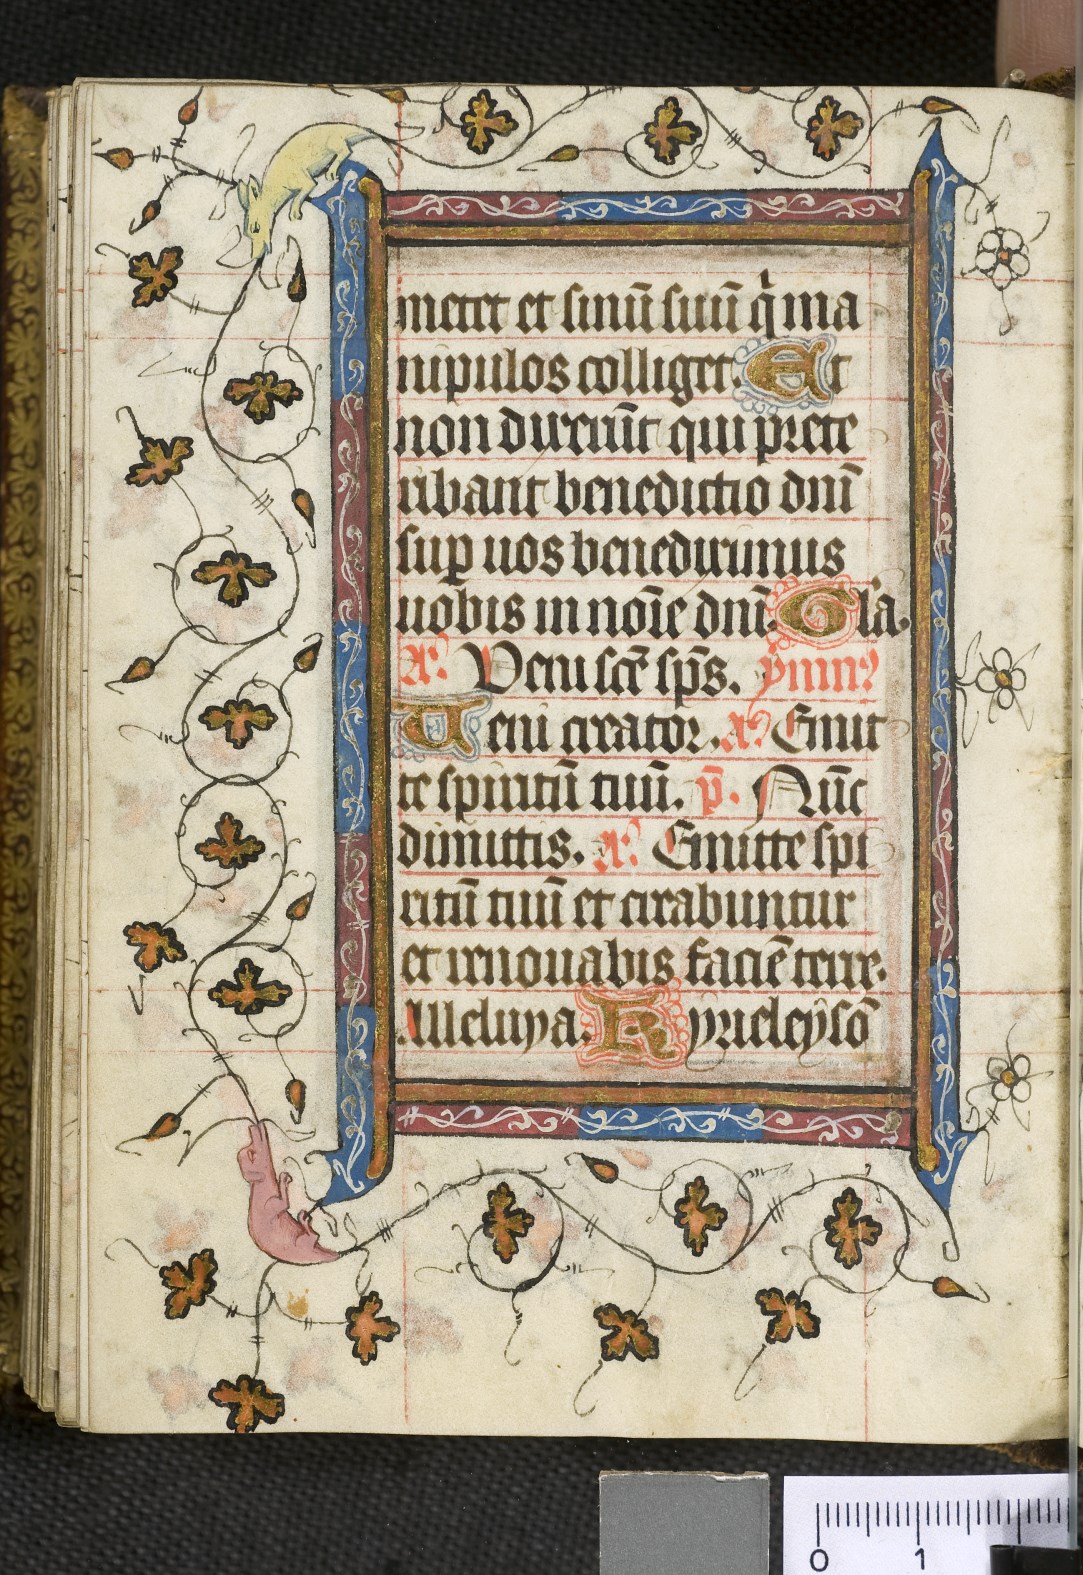 metet et sinū suū q̄ ma
nipulos colliget. Et
non dixerūt qui prete
ribant benedictio dn̄i
suꝑ uos benediximus
uobis in noīe dn̄i. Gl̄a.
Añ. Veni sc̄e sp̄s. ymnꝰ
Veni creator. Añ. Emit
te spiritū tuū. p̄. Nūc
dimittis. Añ. Emitte spi
ritū tuū et creabuntur
et renouabis faciē terre.
Alleluya. Kyrieleysō
0 1